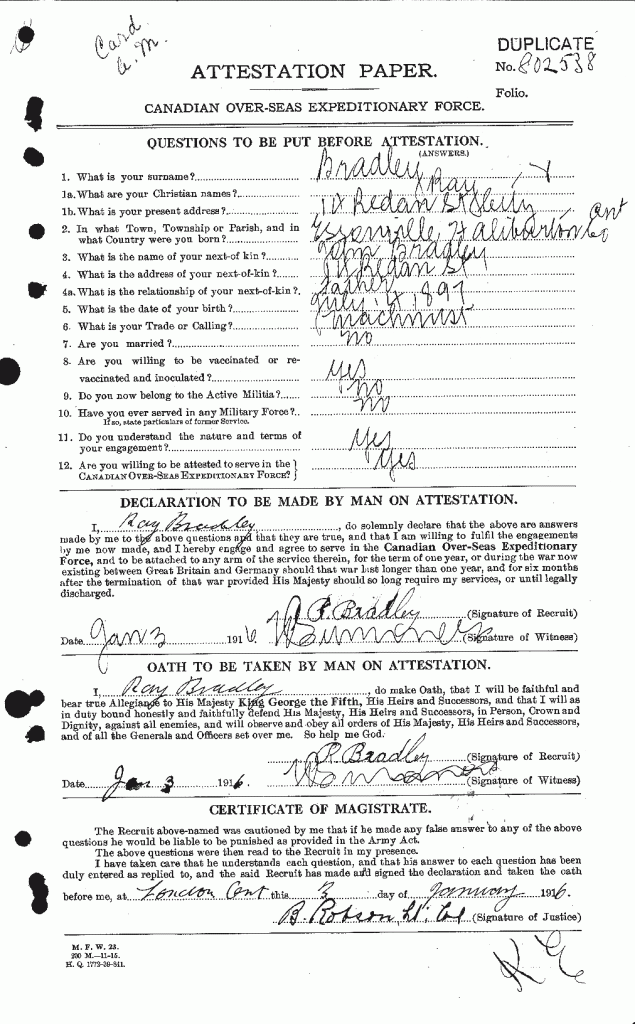 Card
DUPLICATE
ATTESTATION PAPER.
No. 802538
Folio.
CANADIAN OVER-SEAS EXPEDITIONARY FORCE.
QUESTIONS TO BE PUT BEFORE ATTESTATION.
(ANSWERS.)
1. What is your surname? Bradley
1a. What are your Christian names? Ray
1b. What is your present address? Redan St
2. In what Town, Township or Parish, and in
what Country were you born? Haliburton Co Ont
3. What is the name of your next-of kin? John Bradley
4. What is the address of your next-of-kin? Redan St
4a. What is the relationship of your next-of-kin? Father
5. What is the date of your birth? July 4 1897
6. What is your Trade or Calling? Machinist
7. Are you married? No
8. Are you willing to be vaccinated or re-
vaccinated and inoculated? Yes
9. Do you now belong to the Active Militia? No
10. Have you ever served in any Military Force?.. No
If so, state particulars of former Service.
11. Do you understand the nature and terms of
your engagement? Yes
12. Are you willing to be attested to serve in the
CANADIAN OVER-SEAS EXPEDITIONARY FORCE? Yes
DECLARATION TO BE MADE BY MAN ON ATTESTATION.
I, Ray Bradley, do solemnly declare that the above are answers
made by me to the above questions and that they are true, and that I am willing to fulfil the engagements
by me now made, and I hereby engage and agree to serve in the Canadian Over-Seas Expeditionary
Force, and to be attached to any arm of the service therein, for the term of one year, or during the war now
existing between Great Britain and Germany should that war last longer than one year, and for six months
after the termination of that war provided His Majesty should so long require my services, or until legally
discharged.
R Bradley (Signature of Recruit)
Date Jan 3 1916 (Signature of Witness)
OATH TO BE TAKEN BY MAN ON ATTESTATION.
I, Ray Bradley, do make Oath, that I will be faithful and
bear true Allegiance to His Majesty King George the Fifth, His Heirs and Successors, and that I will as
in duty bound honestly and faithfully defend His Majesty, His Heirs and Successors, in Person, Crown and
Dignity, against all enemies, and will observe and obey all orders of His Majesty, His Heirs and Successors,
and of all the Generals and Officers set over me. So help me God.
R Bradley (Signature of Recruit)
Date Jan 3 1916 (Signature of Witness)
CERTIFICATE OF MAGISTRATE.
The Recruit above-named was cautioned by me that if he made any false answer to any of the above
questions he would be liable to be punished as provided in the Army Act.
The above questions were then read to the Recruit in my presence.
I have taken care that he understands each question, and that his answer to each question has been
duly entered as replied to, and the said Recruit has made and signed the declaration and taken the oath
before me, at London Ont this 3 day of January 1916.
B. Robson, Lt. Col (Signature of Justice)
M. F. W. 23.
200 M.—11-15.
H. Q. 1772-39-841.